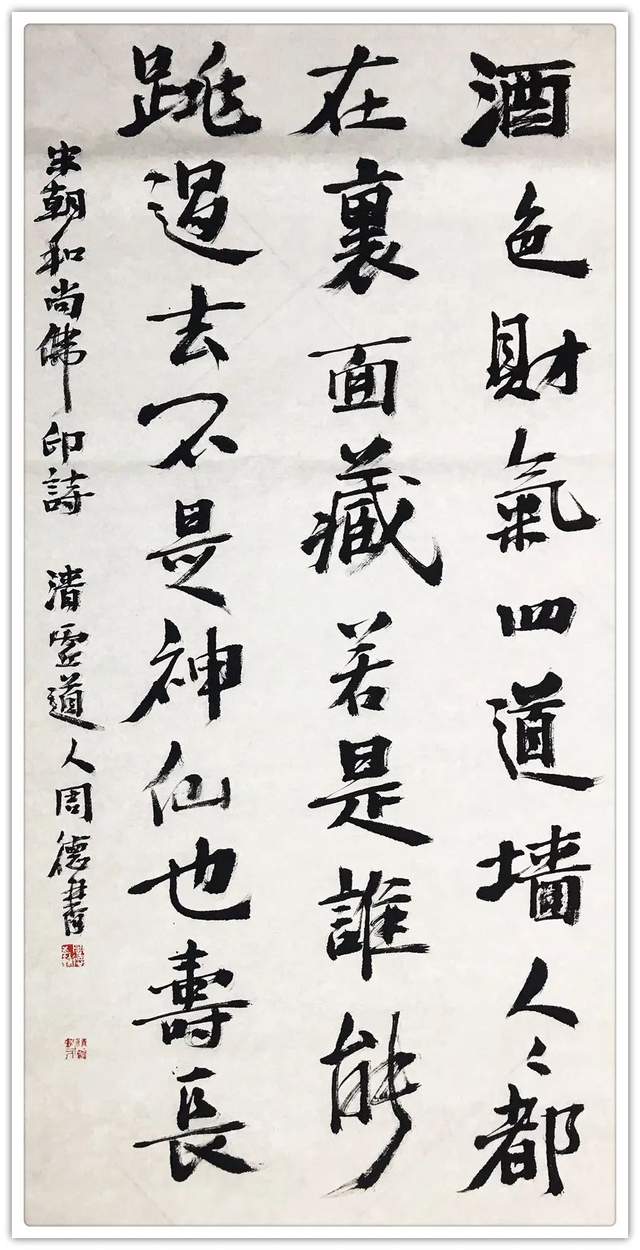 酒色財氣四道墙人々都
在裏面藏若是誰能
跳過去不是神仙也壽長
宋朝和尚佛印詩 清虛道人周德書